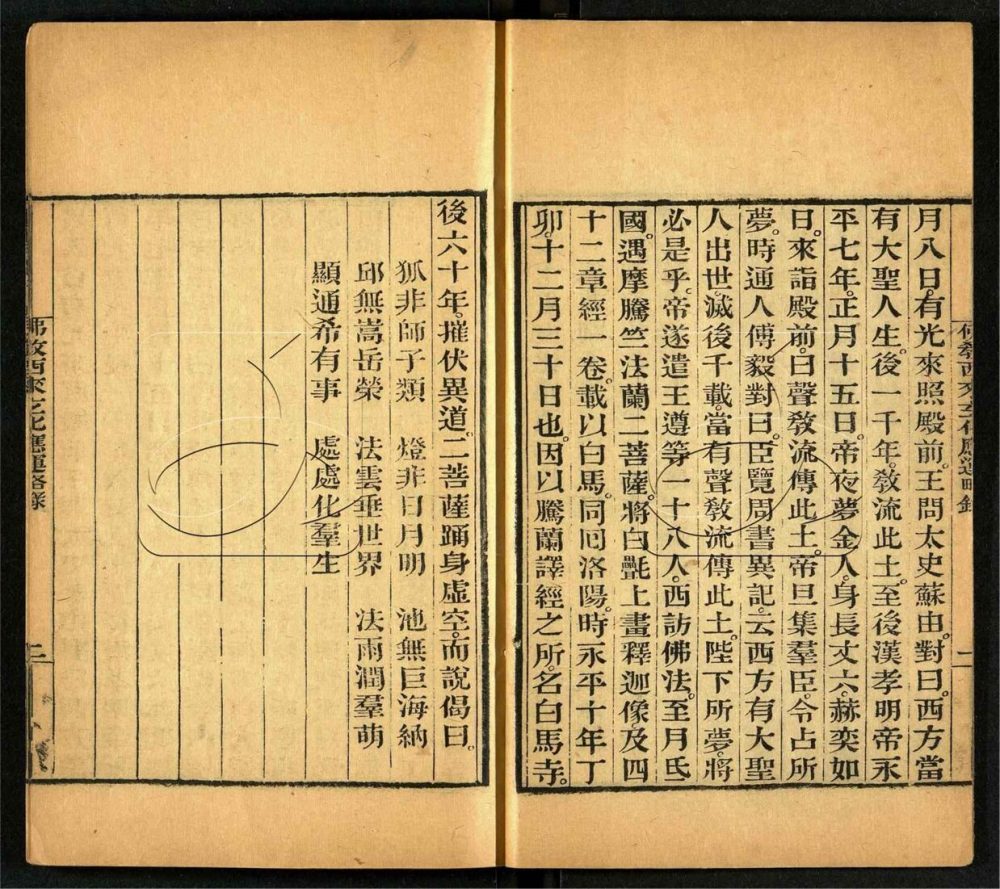 月八日。有光來照殿前。王問太史蘇由。對曰。西方當
有大聖人生。後一千年。教流此土。至後漢孝明帝永
平七年。正月十五日。帝夜夢金人。身長丈六。赫奕如
日。來詣殿前。曰聲教流傳此土。帝旦集羣臣。令占所
夢。時通人傅毅對曰。臣覽周書異記。云西方有大聖
人出世。滅後千載。當有聲教流傳此土。陛下所夢。將
必是乎。帝遂遣王遵等一十八人。西訪佛法。至月氏
國。遇摩騰竺法蘭二菩薩。將白㲲上畫釋迦像。及四
十二章經一卷。載以白馬。同囘洛陽。時永平十年丁
卯。十二月三十日也。因以騰蘭譯經之所。名白馬寺。
後六十年。摧伏異道。二菩薩踊身虛空。而說偈曰。
狐非師子類　燈非日月明　池無巨海納
邱無嵩岳榮　法雲垂世界　法雨潤羣萌
顯通希有事　處處化羣生
二